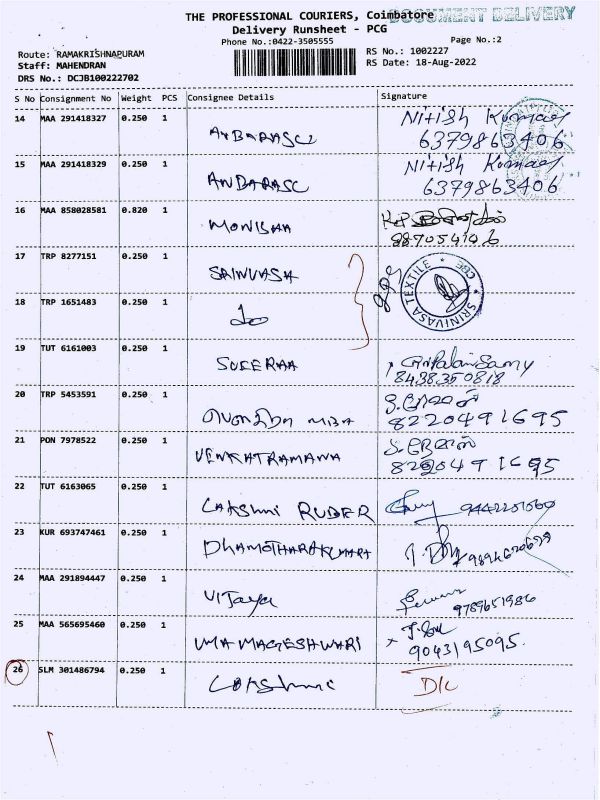 THE PROFESSIONAL COURIERS, Coimbatore
DOCUMENT DELIVERY
Delivery Runsheet - PCG
Phone No.:0422-3505555
Page No.:2
Route: RAMAKRISHNAPURAM
RS No.: 1002227
Staff: MAHENDRAN
RS Date: 18-Aug-2022
DRS No.: DCJB100222702
S No Consignment No Weight PCS Consignee Details Signature
14 MAA 291418327 0.250 1 ANBARASU Nitish Kumar
6379863406
15 MAA 291418329 0.250 1 ANBARASU Nitish Kumar
6379863406
16 MAA 858028581 0.820 1 MONISHA
17 TRP 8277151 0.250 1 SRINIVASA
SRINIVASA TEXTILE * CBE *
18 TRP 1651483 0.250 1 do
19 TUT 6161003 0.250 1 SUSEELA
8438350818
20 TRP 5453591 0.250 1 MIBA
8220491695
21 PON 7978522 0.250 1 VENKATRAMANA
8220491695
22 TUT 6163065 0.250 1 LAKSHMI RUBER
23 KUR 693747461 0.250 1
24 MAA 291894447 0.250 1 VIJaya
9789651986
25 MAA 565695460 0.250 1 UMA MAGESHWARI
9043195095
26 SLM 301486794 0.250 1 Lakshmi D/L